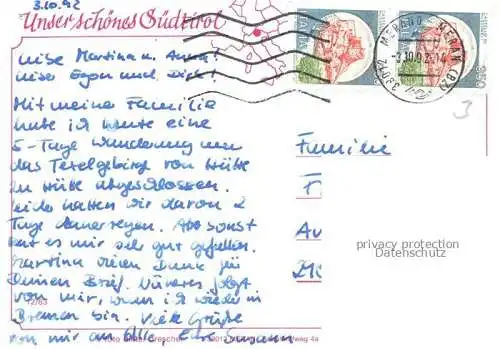 3.10.92
Unser schönes Südtirol
Liebe Martina u. Anna!
Lieber Egon und
Mit meine Familie
habe ich heute eine
5-Tage Wanderung um
das Texelgebirge von Hütte
zu Hütte abgeschlossen.
Leider hatten wir davon 2
Tage Dauerregen. Aber sonst
hat es mir sehr gut gefallen.
Martina vielen Dank für
Deinen Brief. Näheres folgt
von mir, wenn ich wieder in
Bremen bin. Viele Grüße
von mir an alle, Eure Susann
ITALIA
MERANO MERAN (BZ)
39012
3.10.92.14
350
3
Familie
F
Au
privacy protection
Datenschutz
12/63